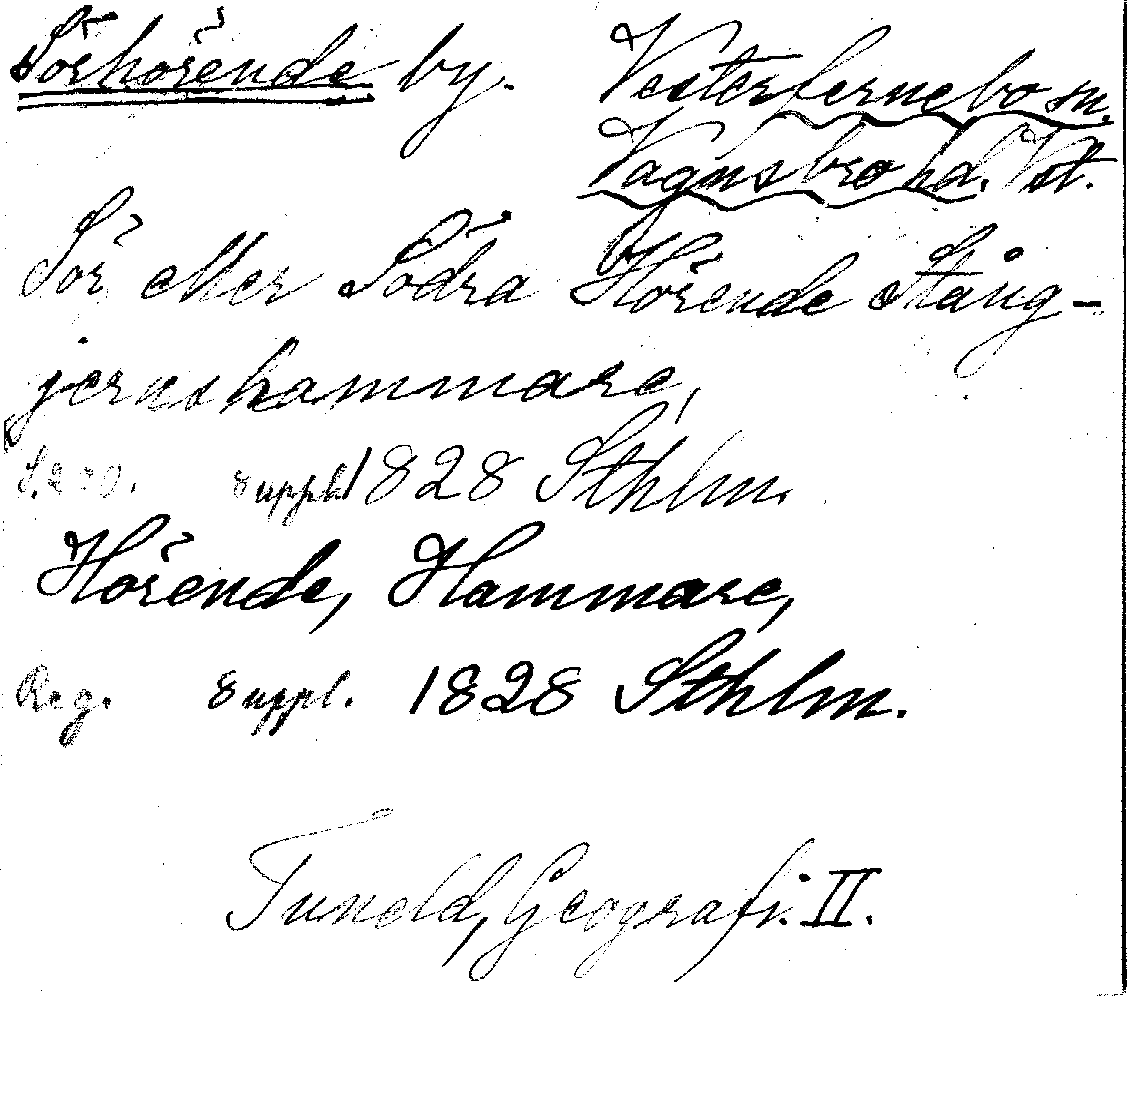 Sörhörende by. Vesterfernebo sn.
Vagnsbro hd. Vstm.
Sör eller Södra Hörende Stång-
jernshammare,
S. 230. Suppl. 1828 Sthlm.
Hörende, Hammare,
Reg. Suppl. 1828 Sthlm.
Tuneld, Geografi. II.